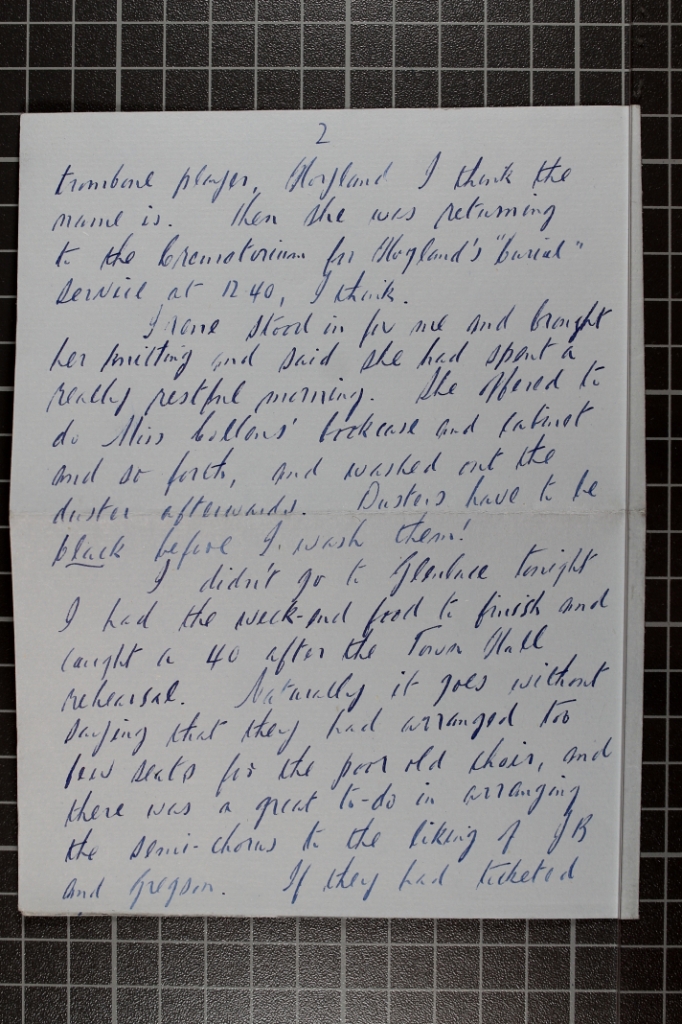 2
trombone player, Hoyland I think the
name is. Then she was returning
to the Crematorium for Hoyland's "burial"
service at 12 40, I think.
Irene stood in for me and brought
her knitting and said she had spent a
really restful morning. She offered to
do Miss Collons' bookcase and cabinet
and so forth, and washed out the
duster afterwards. Dusters have to be
black before I wash them!
I didn't go to tonight
I had the week-end food to finish and
caught a 40 after the Town Hall
rehearsal. Naturally it goes without
saying that they had arranged too
few seats for the poor old choir, and
there was a great to-do in arranging
the semi-chorus to the liking of
and Gregson. If they had ticketed